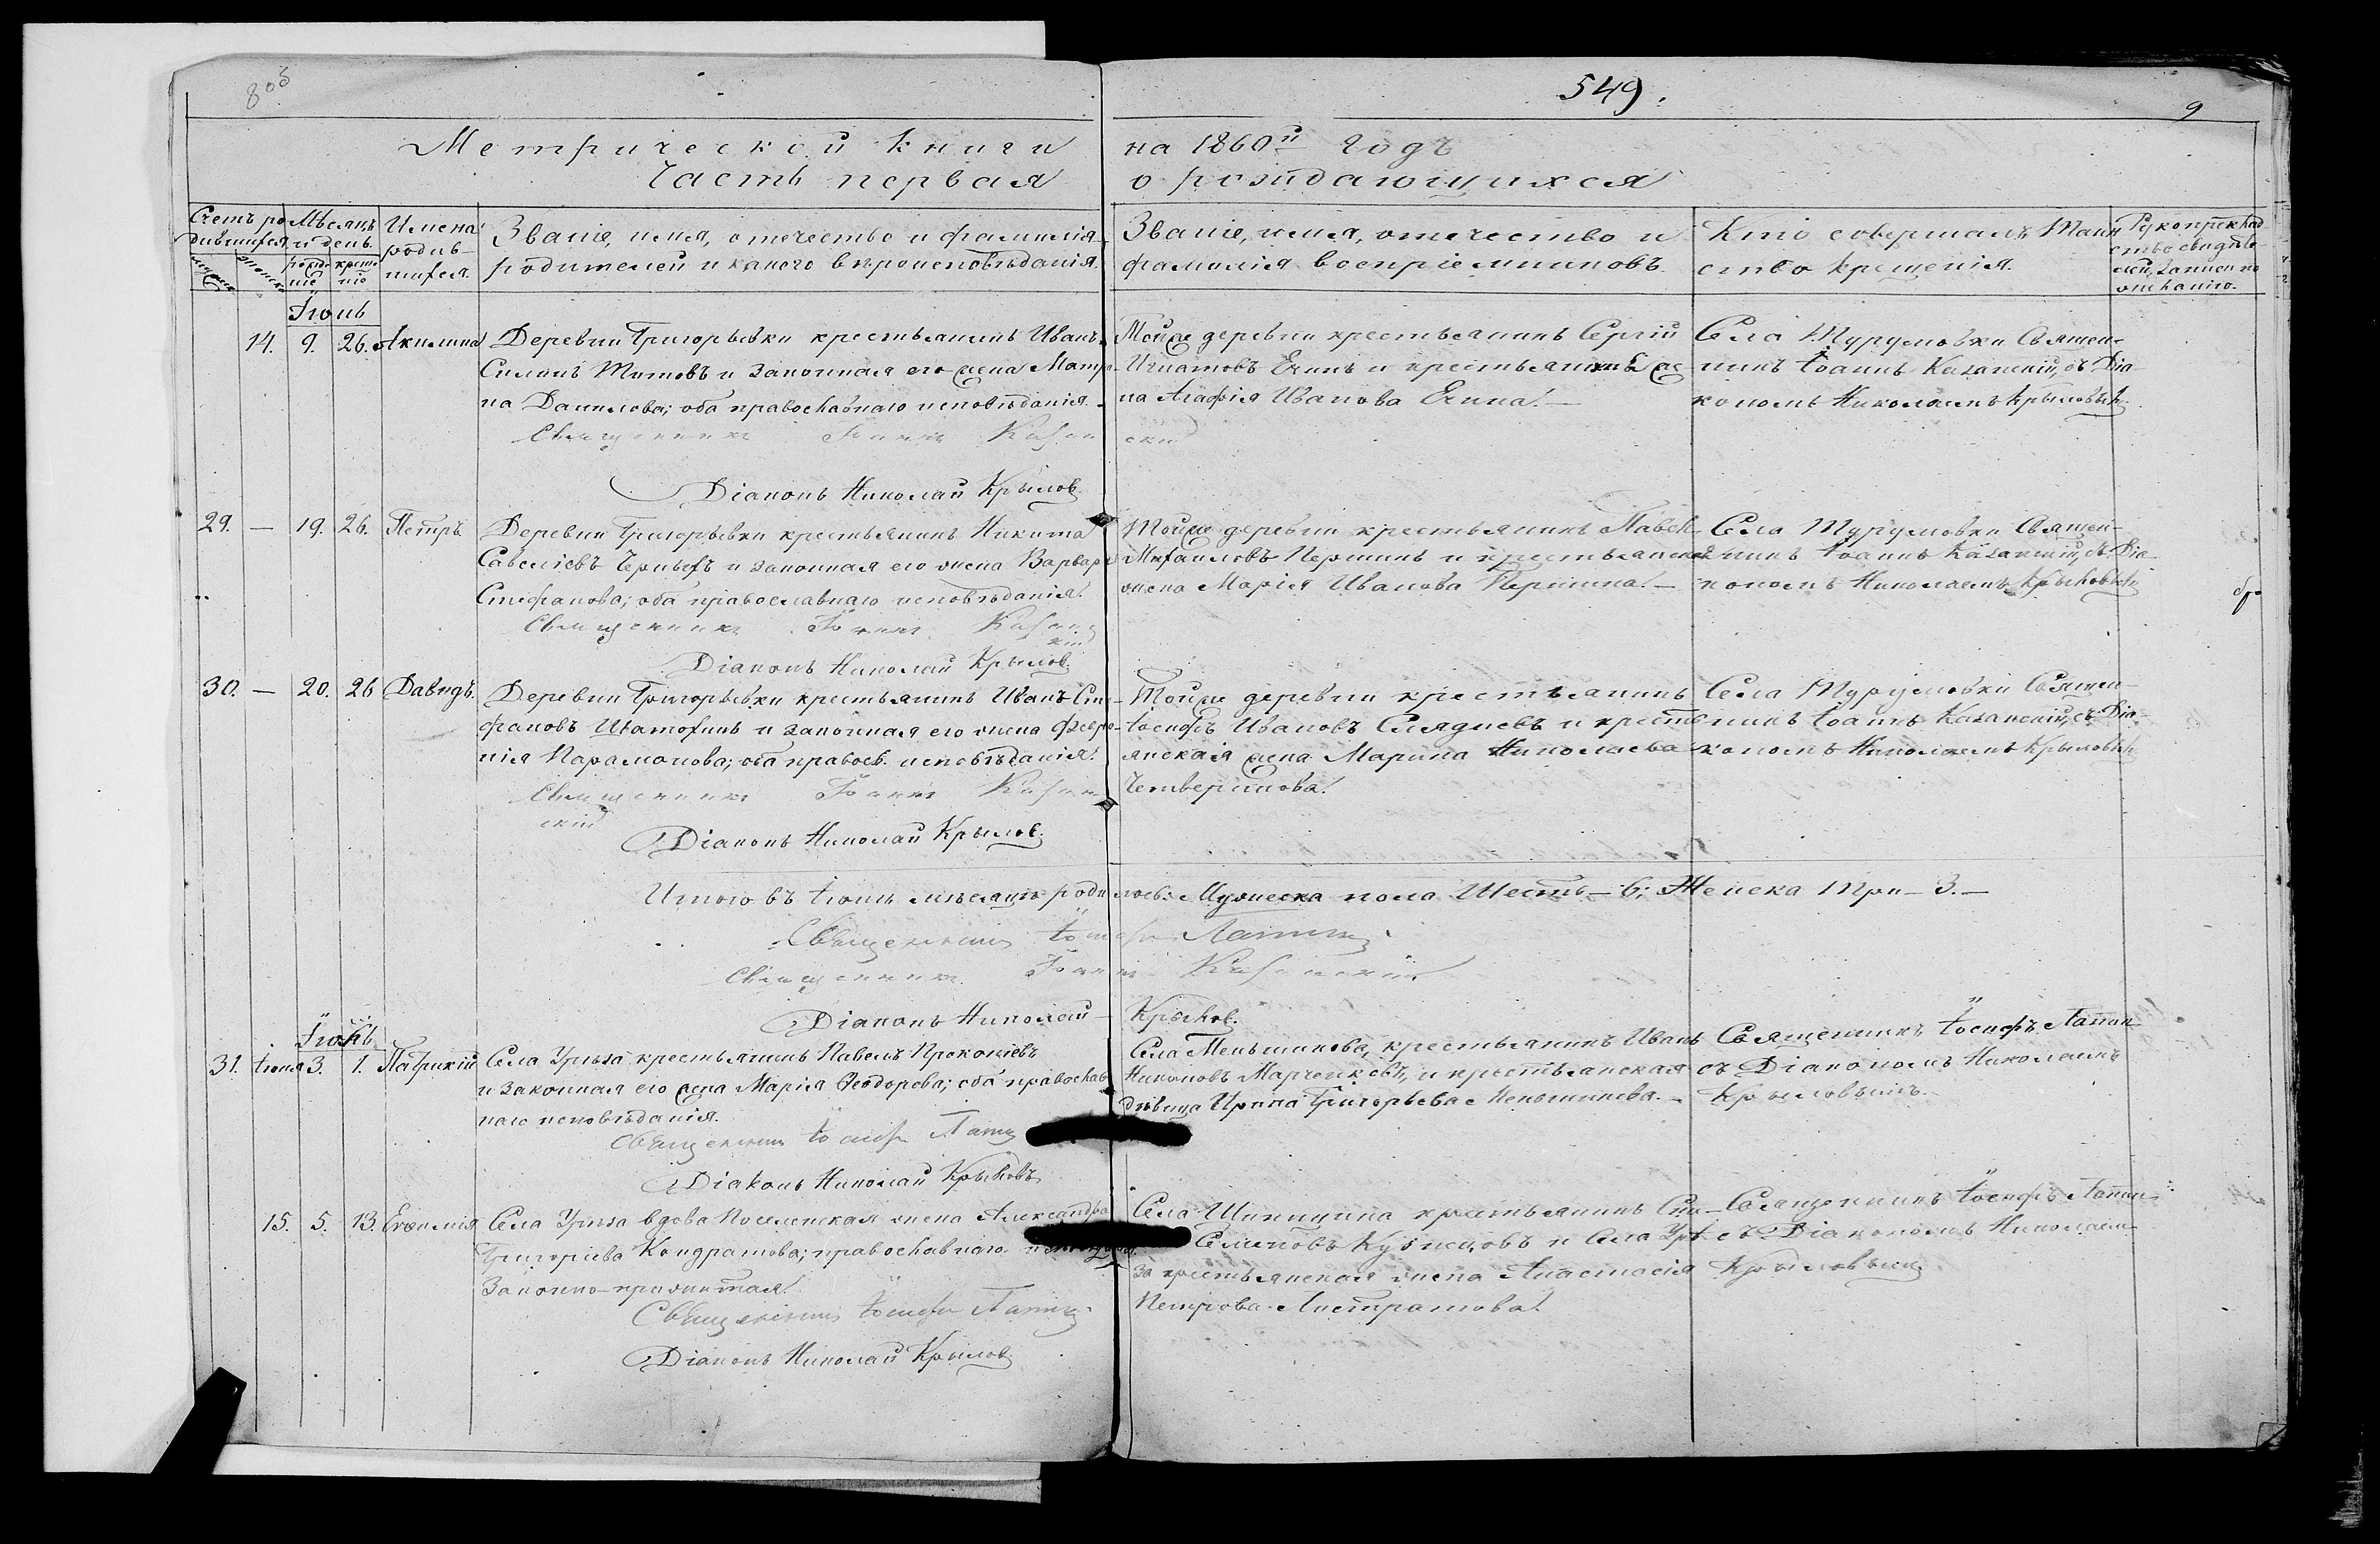 549.
9
Метрической книги на 1860й годъ
Часть первая о рождающихся
Счетъ родившихся
Мѣсяцъ и день
рожденіе
крещеніе
Имена родившихся.
Званіе, имя, отечество и фамилія
родителей и какого вѣроисповѣданія.
Званіе, имя, отечество и
фамилія воспріемниковъ.
Кто совершалъ Таин
ство крещенія.
Рукоприклад
ство свидѣте
лей записи по
желанію.
Іюнь
14. 9. 26. Акилина
Деревни Григорьевки крестьянинъ Иванъ
Силинъ Титовъ и законная его жена Матре
на Данилова; оба православнаго исповѣданія.
Священникъ Іоаннъ Казанскій
Діаконъ Николай Крылов
Тойже деревни крестьянинъ Сергій
Игнатовъ Ечинъ и крестьянская же
на Агафія Иванова Ечина.
Села Турумовки Священ-
никъ Іоаннъ Казанскій, съ Діа
кономъ Николаемъ Крыловымъ.
29. — 19. 26. Петръ
Деревни Григорьевки крестьянинъ Никита
Савеліевъ и законная его жена Варвара
Стефанова; оба православнаго исповѣданія.
Священникъ Іоаннъ Казанскій
Діаконъ Николай Крылов.
Тойже деревни крестьянинъ Павелъ
Михаиловъ Першинъ и крестьянская
жена Марія Иванова Першина.
Села Турумовки Священ-
никъ Іоаннъ Казанскій, съ Діа
кономъ Николаемъ Крыловымъ
30. — 20. 26 Давидъ.
Деревни Григорьевки крестьянинъ Иванъ Сте-
фановъ Шатохинъ и законная его жена Февро-
нія Парамонова; оба правосл. исповѣданія.
Священникъ Іоаннъ Казан
скій
Діаконъ Николай Крылов.
Тойже деревни крестьянинъ
Іосифъ Ивановъ Слядневъ и кресть
янская жена Марина Николаева
Четверикова.
Села Турумовки Священ-
никъ Іоаннъ Казанскій, съ Діа
кономъ Николаемъ Крыловымъ
Итого въ Іюнѣ мѣсяцѣ родилось: Мужеска пола Шесть — 6; Женска Три — 3. —
Священникъ Іосифъ Лапин
Священникъ Іоаннъ Казанскій
Діаконъ Николай Крылов.
Іюль
31. Іюля 3. 1. Патрикій
Села Урыва крестьянинъ Павелъ Прокопіевъ
и законная его жена Марія Ѳеодорова; оба православ
наго исповѣданія.
Священникъ Іосифъ
Діаконъ Николай Крыловъ
Села Меньшикова, крестьянинъ Иванъ
Никоновъ и крестьянская
дѣвица Ирина Григорьева Меньшикова.
Священникъ Іосифъ Лапин
съ Діакономъ Николаемъ
Крыловымъ.
15. 5. 13. Евѳимія
Села Урыва вдова Поселенская жена Александра
Григоріева Кондратова; православнаго
Законно-прижитая.
Священникъ Іосифъ
Діаконъ Николай Крылов
Села Шипицина крестьянинъ
Семеновъ Кузнецовъ и Села Уры
ва крестьянская жена Анастасія
Петрова Листратова.
Священникъ Іосифъ Лапин
съ Діакономъ Николаем
Крыловым